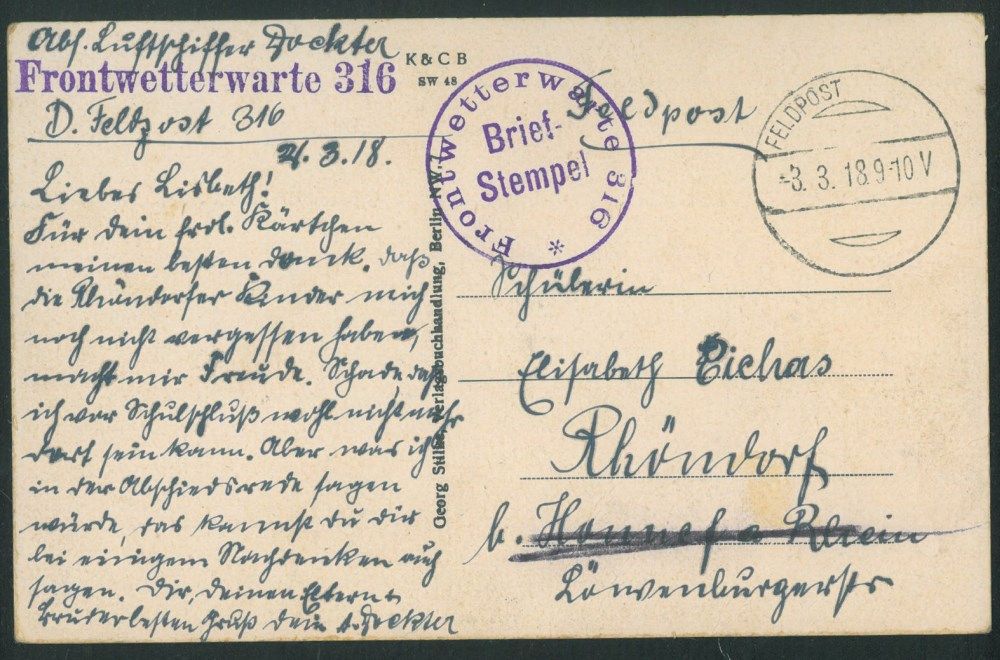 Abs. Luftschiffer Dockter
Frontwetterwarte 316
D. Feldpost 316
2. 3. 18.
Liebes Lisbeth!
Für dein frdl. Kärtchen
meinen besten Dank. daß
die Rhöndorfer Kinder mich
noch nicht vergessen haben,
macht mir Freude. Schade, daß
ich vor Schulschluß wohl nicht mehr
dort sein kann. Aber was ich
in der Abschiedsrede sagen
würde, das kannst du dir
bei einigem Nachdenken auch
sagen. Dir, deinen Eltern u
Bruder besten Gruß dein Dockter
K & C B
SW 48
Georg Stilke, Verlagsbuchhandlung, Berlin NW. 7
Frontwetterwarte 316 *
Brief-
Stempel
Feldpost
FELDPOST
-3. 3. 18 9-10 V
Schülerin
Elisabeth Eichas
Rhöndorf
b. Honnef a Rhein
Löwenburgerstr